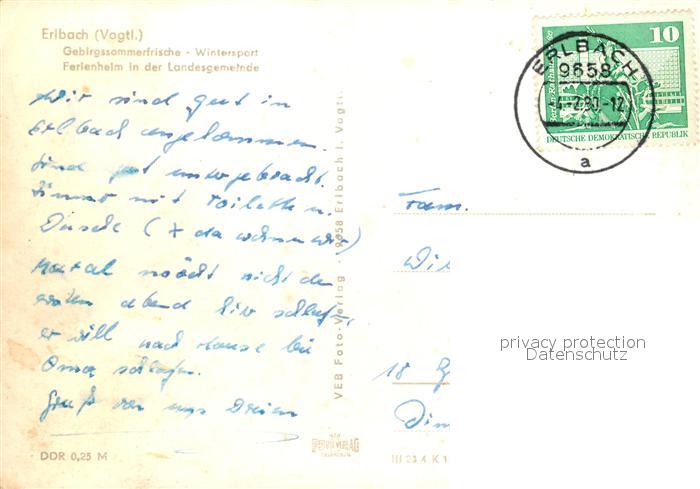 Erlbach (Vogtl.)
Gebirgssommerfrische - Wintersport
Ferienheim in der Landesgemeinde
Wir sind gut in
Erlbach angekommen.
Sind gut untergebracht.
Zimmer mit Toilette u.
Dusche (x da wohnen wir)
möcht nicht den
ersten abend hir schlafen,
er will nach Hause bei
Oma schlafen.
Gruß von uns Dreien
DDR 0,25 M
VEB Foto-Verlag · 9658 Erlbach i. Vogtl.
FOTO VERLAG
ERLBACH
III 23 4 K 1
10
DEUTSCHE DEMOKRATISCHE REPUBLIK
ERLBACH
9658
80-12
a
Fam.
Wil
18
privacy protection
Datenschutz